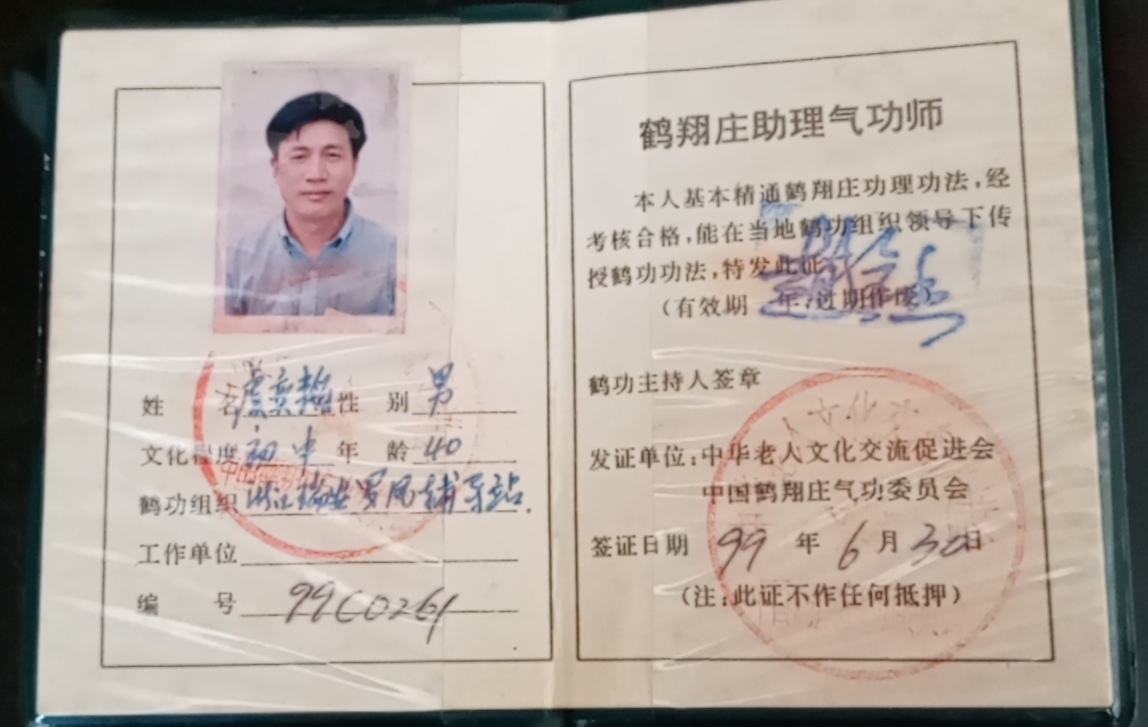 姓 名 虞奕艳 性 别 男
文化程度 初中 年 龄 40
鹤功组织 浙江瑞安罗凤辅导站.
工作单位
编 号 99C0261
鹤翔庄助理气功师
本人基本精通鹤翔庄功理功法,经
考核合格,能在当地鹤功组织领导下传
授鹤功功法,特发此证
(有效期 年,过期作废)
鹤功主持人签章
发证单位:中华老人文化交流促进会
中国鹤翔庄气功委员会
签证日期 99 年 6 月 30日
(注:此证不作任何抵押)